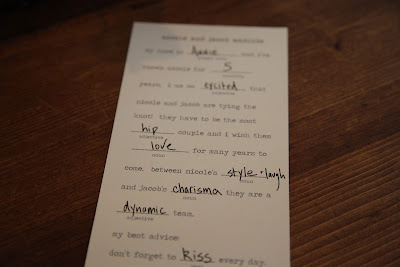 nicole and jacob
my name is and i've
known nicole for 5
years. i am so excited that
adjective
nicole and jacob are tying the
knot! they have to be the most
hip couple and i wish them
adjective
love for many years to
noun
come. between nicole's style + laugh
noun
and jacob's charisma they are a
noun
dynamic team.
adjective
my best advice
don't forget to kiss every day.